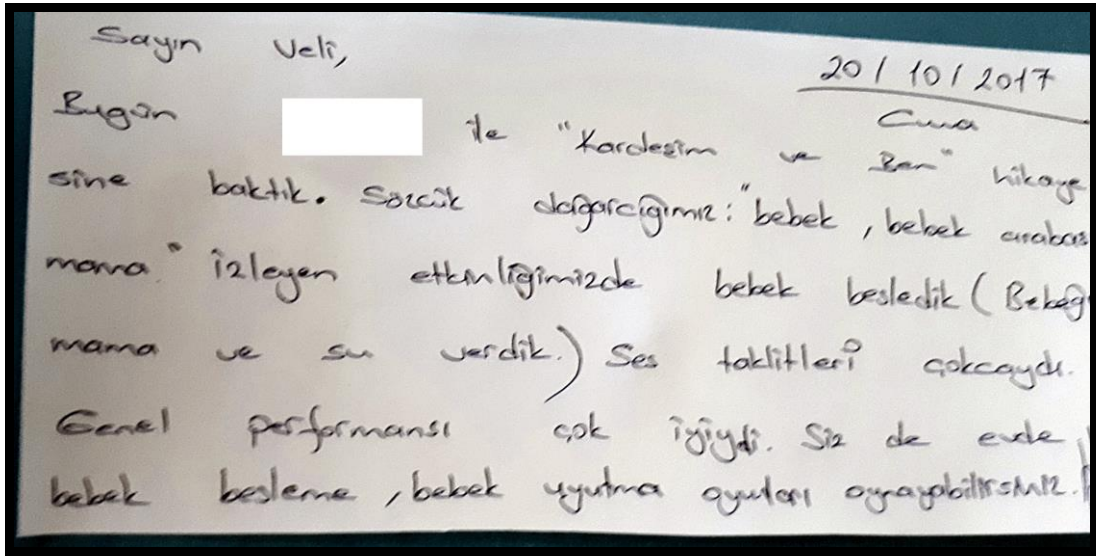 Sayın Veli,
20 / 10 / 2017
Cuma
Bugün ile "Kardeşim ve Ben" hikaye
sine baktık. Sözcük dağarcığımız: "bebek, bebek arabas
mama." İzleyen etkinliğimizde bebek besledik (Bebeğ
mama ve su verdik.) Ses taklitleri çokcaydı.
Genel performansı çok iyiydi. Siz de evde
bebek besleme, bebek uyutma oyunları oynayabilirsiniz.